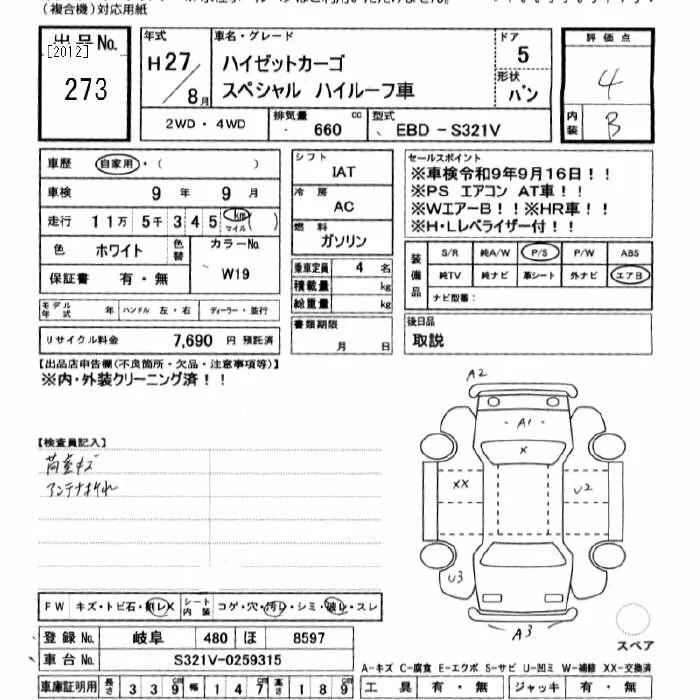 (複合機)対応用紙
出品No.
[2012]
273
年式
H27/8月
車名・グレード
ハイゼットカーゴ
スペシャル ハイルーフ車
ドア
5
形状
バン
評価点
4
内装
B
2WD・4WD
排気量 660 cc
型式 EBD-S321V
車歴 自家用・( )
車検 9年 9月
走行 11万 5千 3 4 5 km マイル ( )
色 ホワイト 色替
カラーNo.
W19
保証書 有・無
モデル年式 年 ハンドル 左・右 ディーラー・並行
リサイクル料金 7,690 円 預託済
シフト
IAT
冷房
AC
燃料
ガソリン
乗車定員 4 名
積載量 kg
総重量 kg
書類期限
月 日
セールスポイント
※車検令和9年9月16日!!
※PS エアコン AT車!!
※WエアーB!!※HR車!!
※H・Lレベライザー付!!
装備品
S/R 純A/W P/S P/W ABS
純TV 純ナビ 革シート 外ナビ エアB
ナビ型番:
後日品
取説
【出品店申告欄(不良箇所・欠品・注意事項等)】
※内・外装クリーニング済!!
【検査員記入】
荷室キズ
アンテナおれ
A2
A1
X
XX
U2
U3
A3
スペア
FW キズ・トビ石・割レX
シート内装 コゲ・穴・汚レ・シミ・破レ・スレ
登録No. 岐阜 480 ほ 8597
車台No. S321V-0259315
車庫証明用 長さ 339cm 幅 147cm 高さ 189cm
A-キズ C-腐食 E-エクボ S-サビ U-凹ミ W-補修 XX-交換済
工具 有・無 ジャッキ 有・無